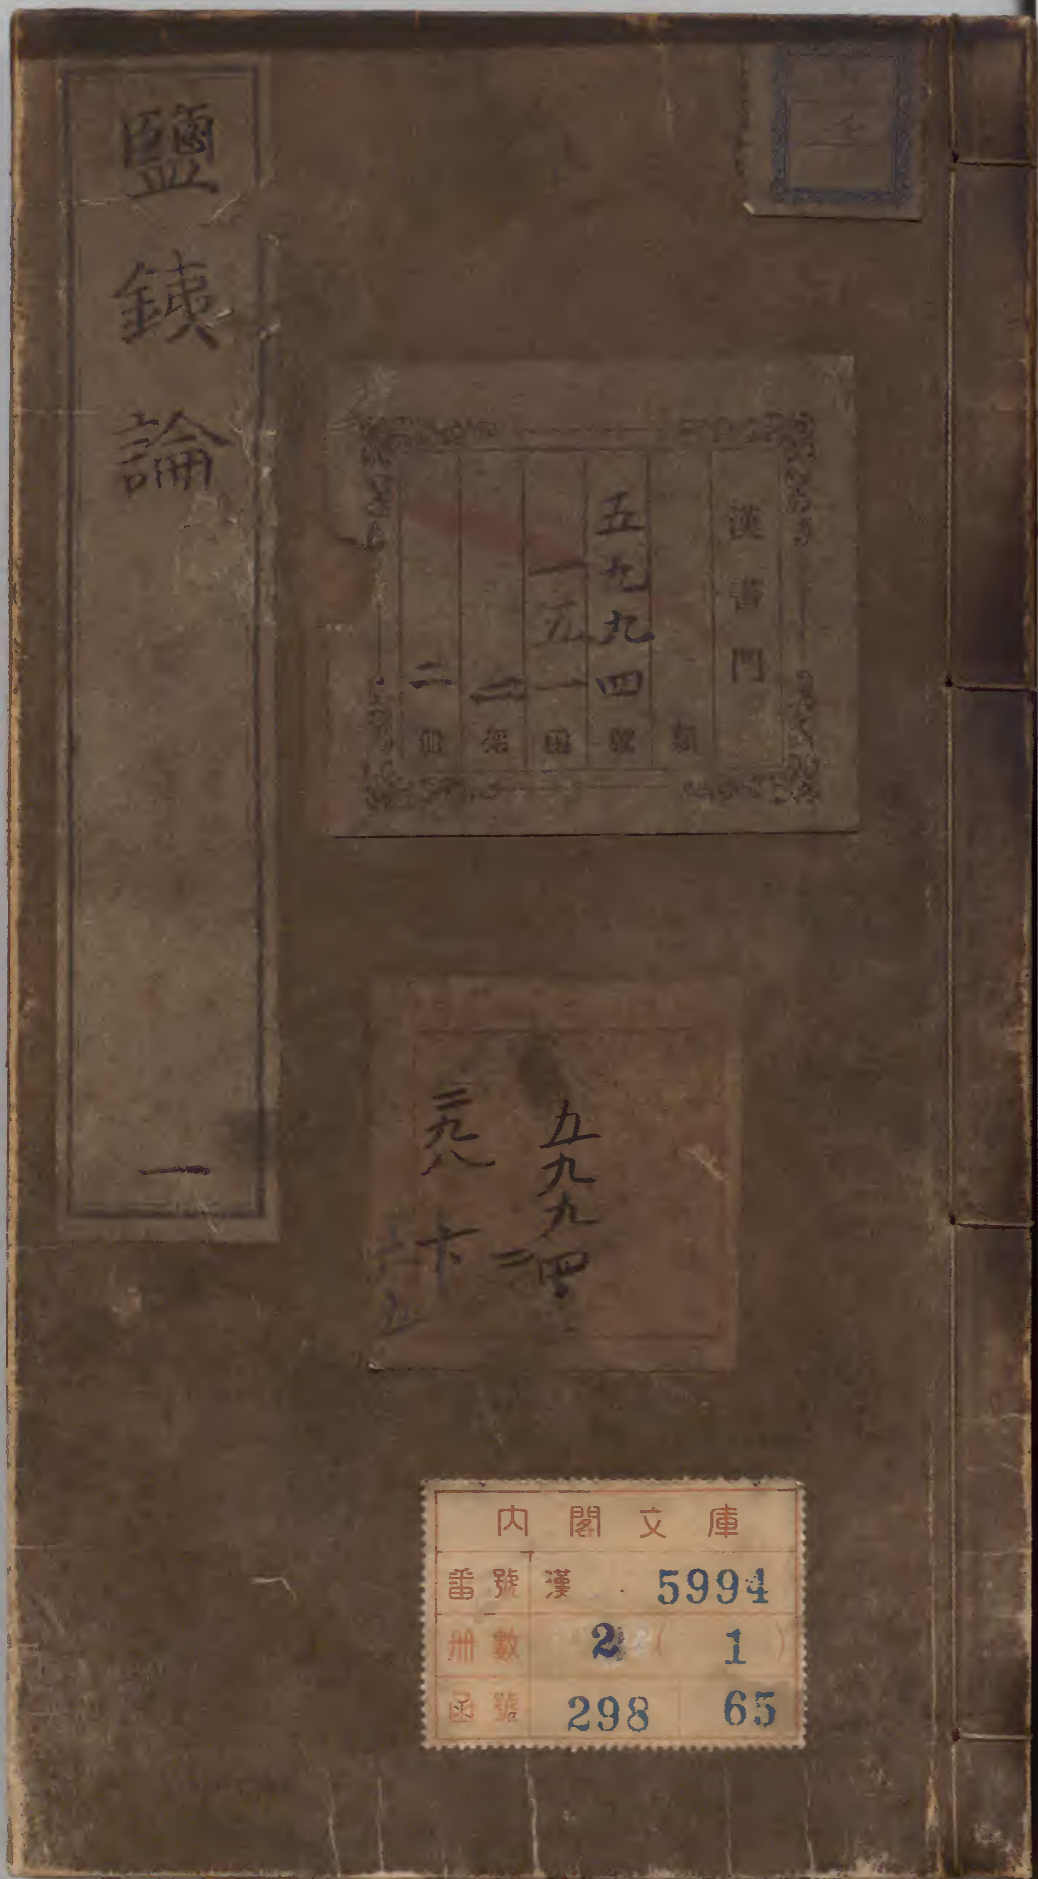 鹽銕論
一
漢書門
類
五九九四號
一五一函
二架
二冊
五九九四
二
二九八
内閣文庫
番號 漢 5994
冊數 2 ( 1 )
函號 298 65